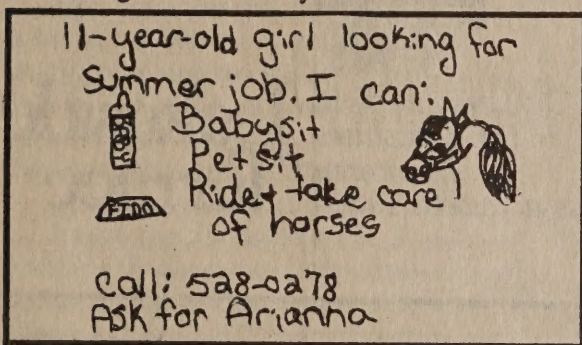 11-year-old girl looking for
summer job. I can:
Babysit
Pet sit
Ride + take care
of horses
FIDO
call: 528-0278
Ask for Arianna